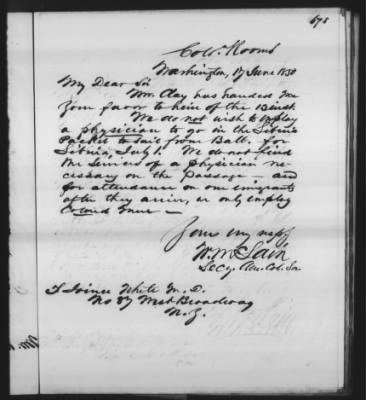 678
Colo. Rooms
Washington, 17 June 1850
My Dear Sir
Mr. Clay has handed me
your favor to him of the 12 inst
We do not wish to employ
a physician to go in the Liberia
Packet to sail from Balt. for
Liberia, July 1. We do not find
the services of a physician ne-
cessary on the passage — and
for attendance on our emigrants
after they arrive, we only employ
Colored ones —
Yours very respy
W. McLain
Secy. Am. Col. So.
White M. D.
No 87 West Broadway
N. Y.